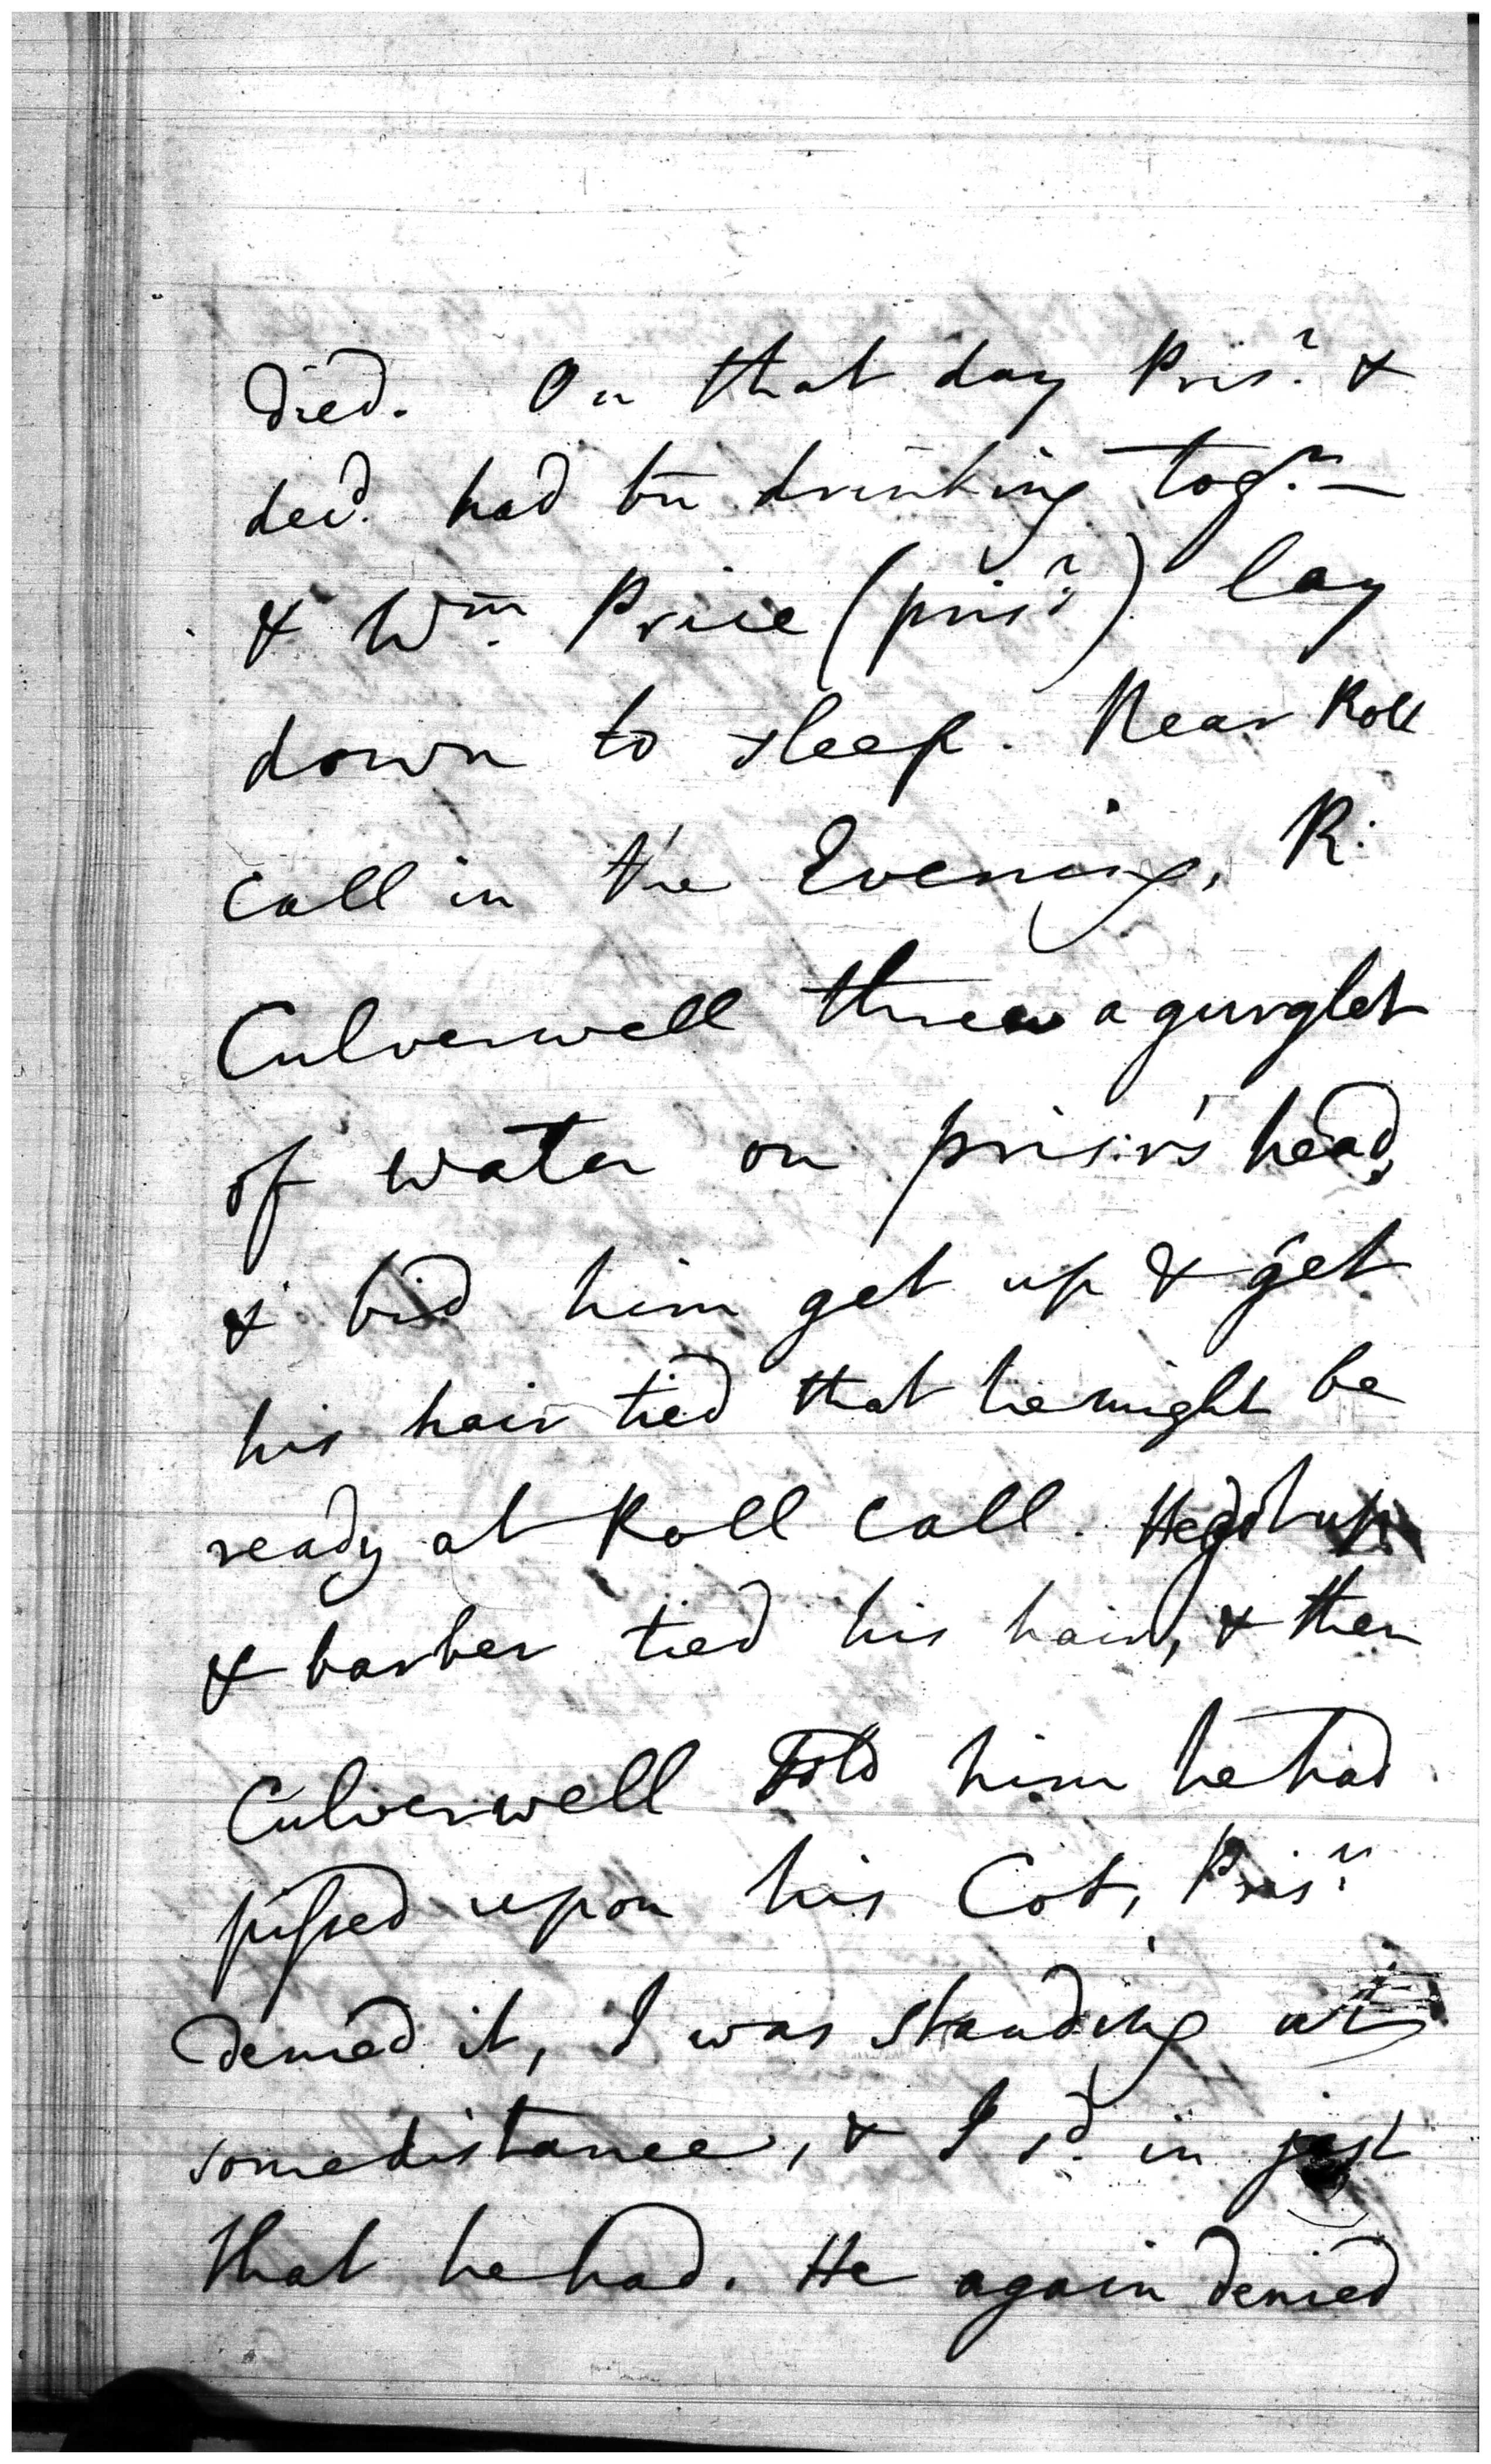 died. On that day Pris.r &
decd. had bn drinking tog.r —
& Wm. Price (pris.r) lay
down to sleep. Near Roll
call in the Evening, R:
Culverwell threw a gurglet
of water on pris:r's head,
& bid him get up & get
his hair tied that he might be
ready at Roll call. He got up
& barber tied his hair, & then
Culverwell Told him he had
pissed upon his Cot, Pris.r
denied it, I was standing at
some distance, & I sd. in jest
that he had. He again denied